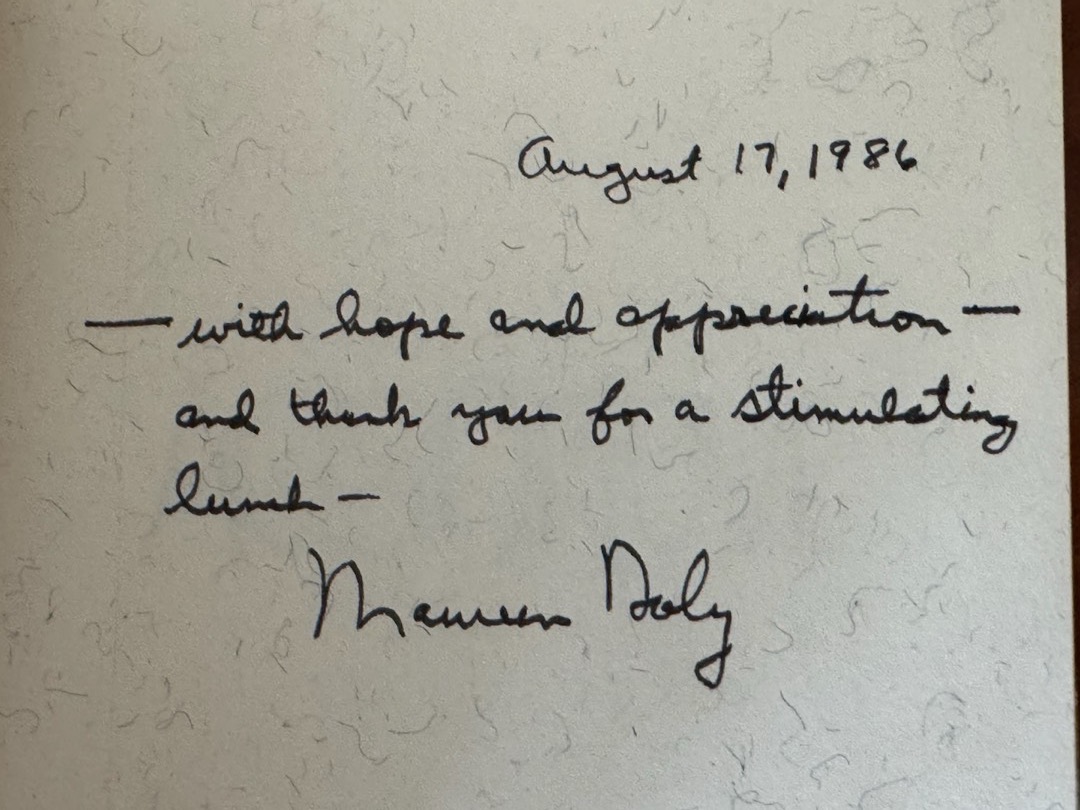 August 17, 1986
— with hope and appreciation —
and thank you for a stimulating
lunch —
Maureen Daly